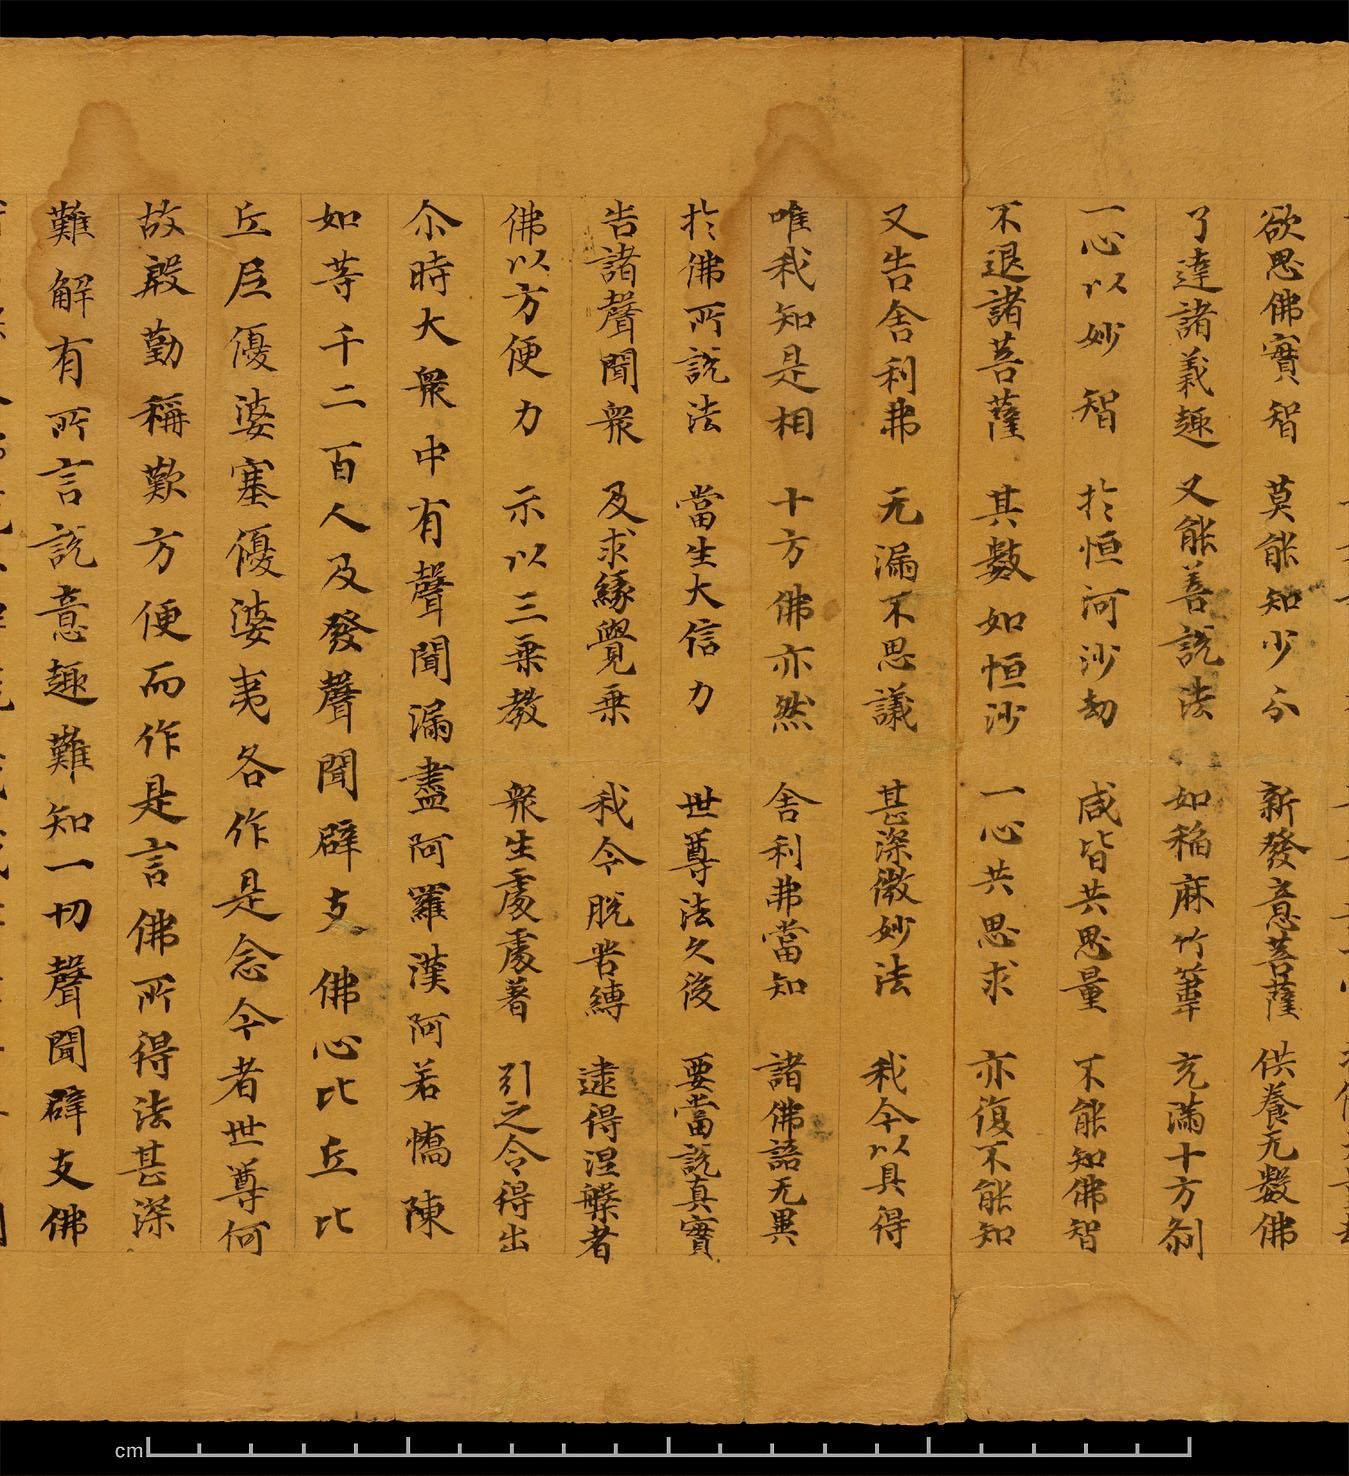 欲思佛實智 莫能知少分 新發意菩薩 供養无數佛
了達諸義趣 又能善說法 如稲麻竹葦 充滿十方刹
一心以妙智 於恒河沙劫 咸皆共思量 不能知佛智
不退諸菩薩 其數如恒沙 一心共思求 亦復不能知
又告舍利弗 无漏不思議 甚深微妙法 我今以具得
唯我知是相 十方佛亦然 舍利弗當知 諸佛語无異
於佛所說法 當生大信力 世尊法久後 要當說真實
告諸聲聞衆 及求緣覺乗 我令脫苦縛 逮得涅槃者
佛以方便力 示以三乗教 衆生處處著 引之令得出
尒時大衆中有聲聞漏盡阿羅漢阿若憍陳
如等千二百人及發聲聞辟支佛心比丘比
丘尼優婆塞優婆夷各作是念今者世尊何
故慇勤稱歎方便而作是言佛所得法甚深
難解有所言說意趣難知一切聲聞辟支佛